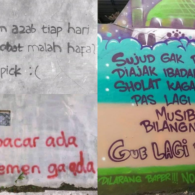 m azab tiap hari
obat malah hafal
pick :(
pacar ada
emen ga ada
SUJUD GAK
DIAJAK IBADA
SHOLAT KAGA
PAS LAGI
MUSIB
BILANGN
GUE LAGI